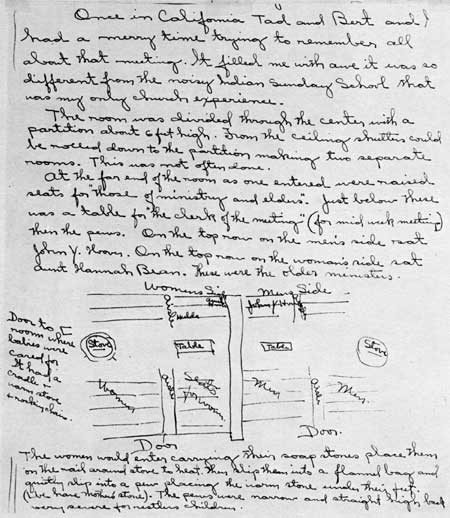 Once in California Tad and Bert and I
had a merry time trying to remember all
about that meeting. It filled me with awe it was so
different from the noisy Indian Sunday School that
was my only church experience.
The room was divided through the center with a
partition about 6 feet high. From the ceiling shutters could
be down to the partition making two separate
rooms. This was not often done.
At the far end of the room as one entered were raised
seats for "those of ministry and elders". Just below these
was a table for "the clerk of the meeting" (for mid week meeting)
then the pews. On the top row on the men's side sat
John Y. Hoover. On the top row on the woman's side sat
aunt Hannah Bean. These were the older ministers.
Womens Side
Mens Side
John Y Hoover
Door to
room where
babies were
cared for
It had a
cradle
warm stove
& rocking chairs.
Stove
Table
Table
Stove
Women
Aisle
Seats
for women
Men
Aisle
Men
Door
Door.
The women would enter carrying their soap stones place them
on the rail around stove to heat, then slip them into a flannel bag and
quietly slip into a pew placing the warm stone under their feet
(We have mothers stone). The pews were narrow and straight high back
very severe for restless children.